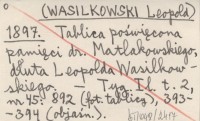 (WASILKOWSKI Leopold)
1897. Tablica poświęcona
pamięci dr. Matlakowskiego,
dłuta Leopolda Wasilkow
skiego. — Tyg. Il. t. 2,
nr 45: 892 (fot. tablicy), 393-
-394 (objaśn.).